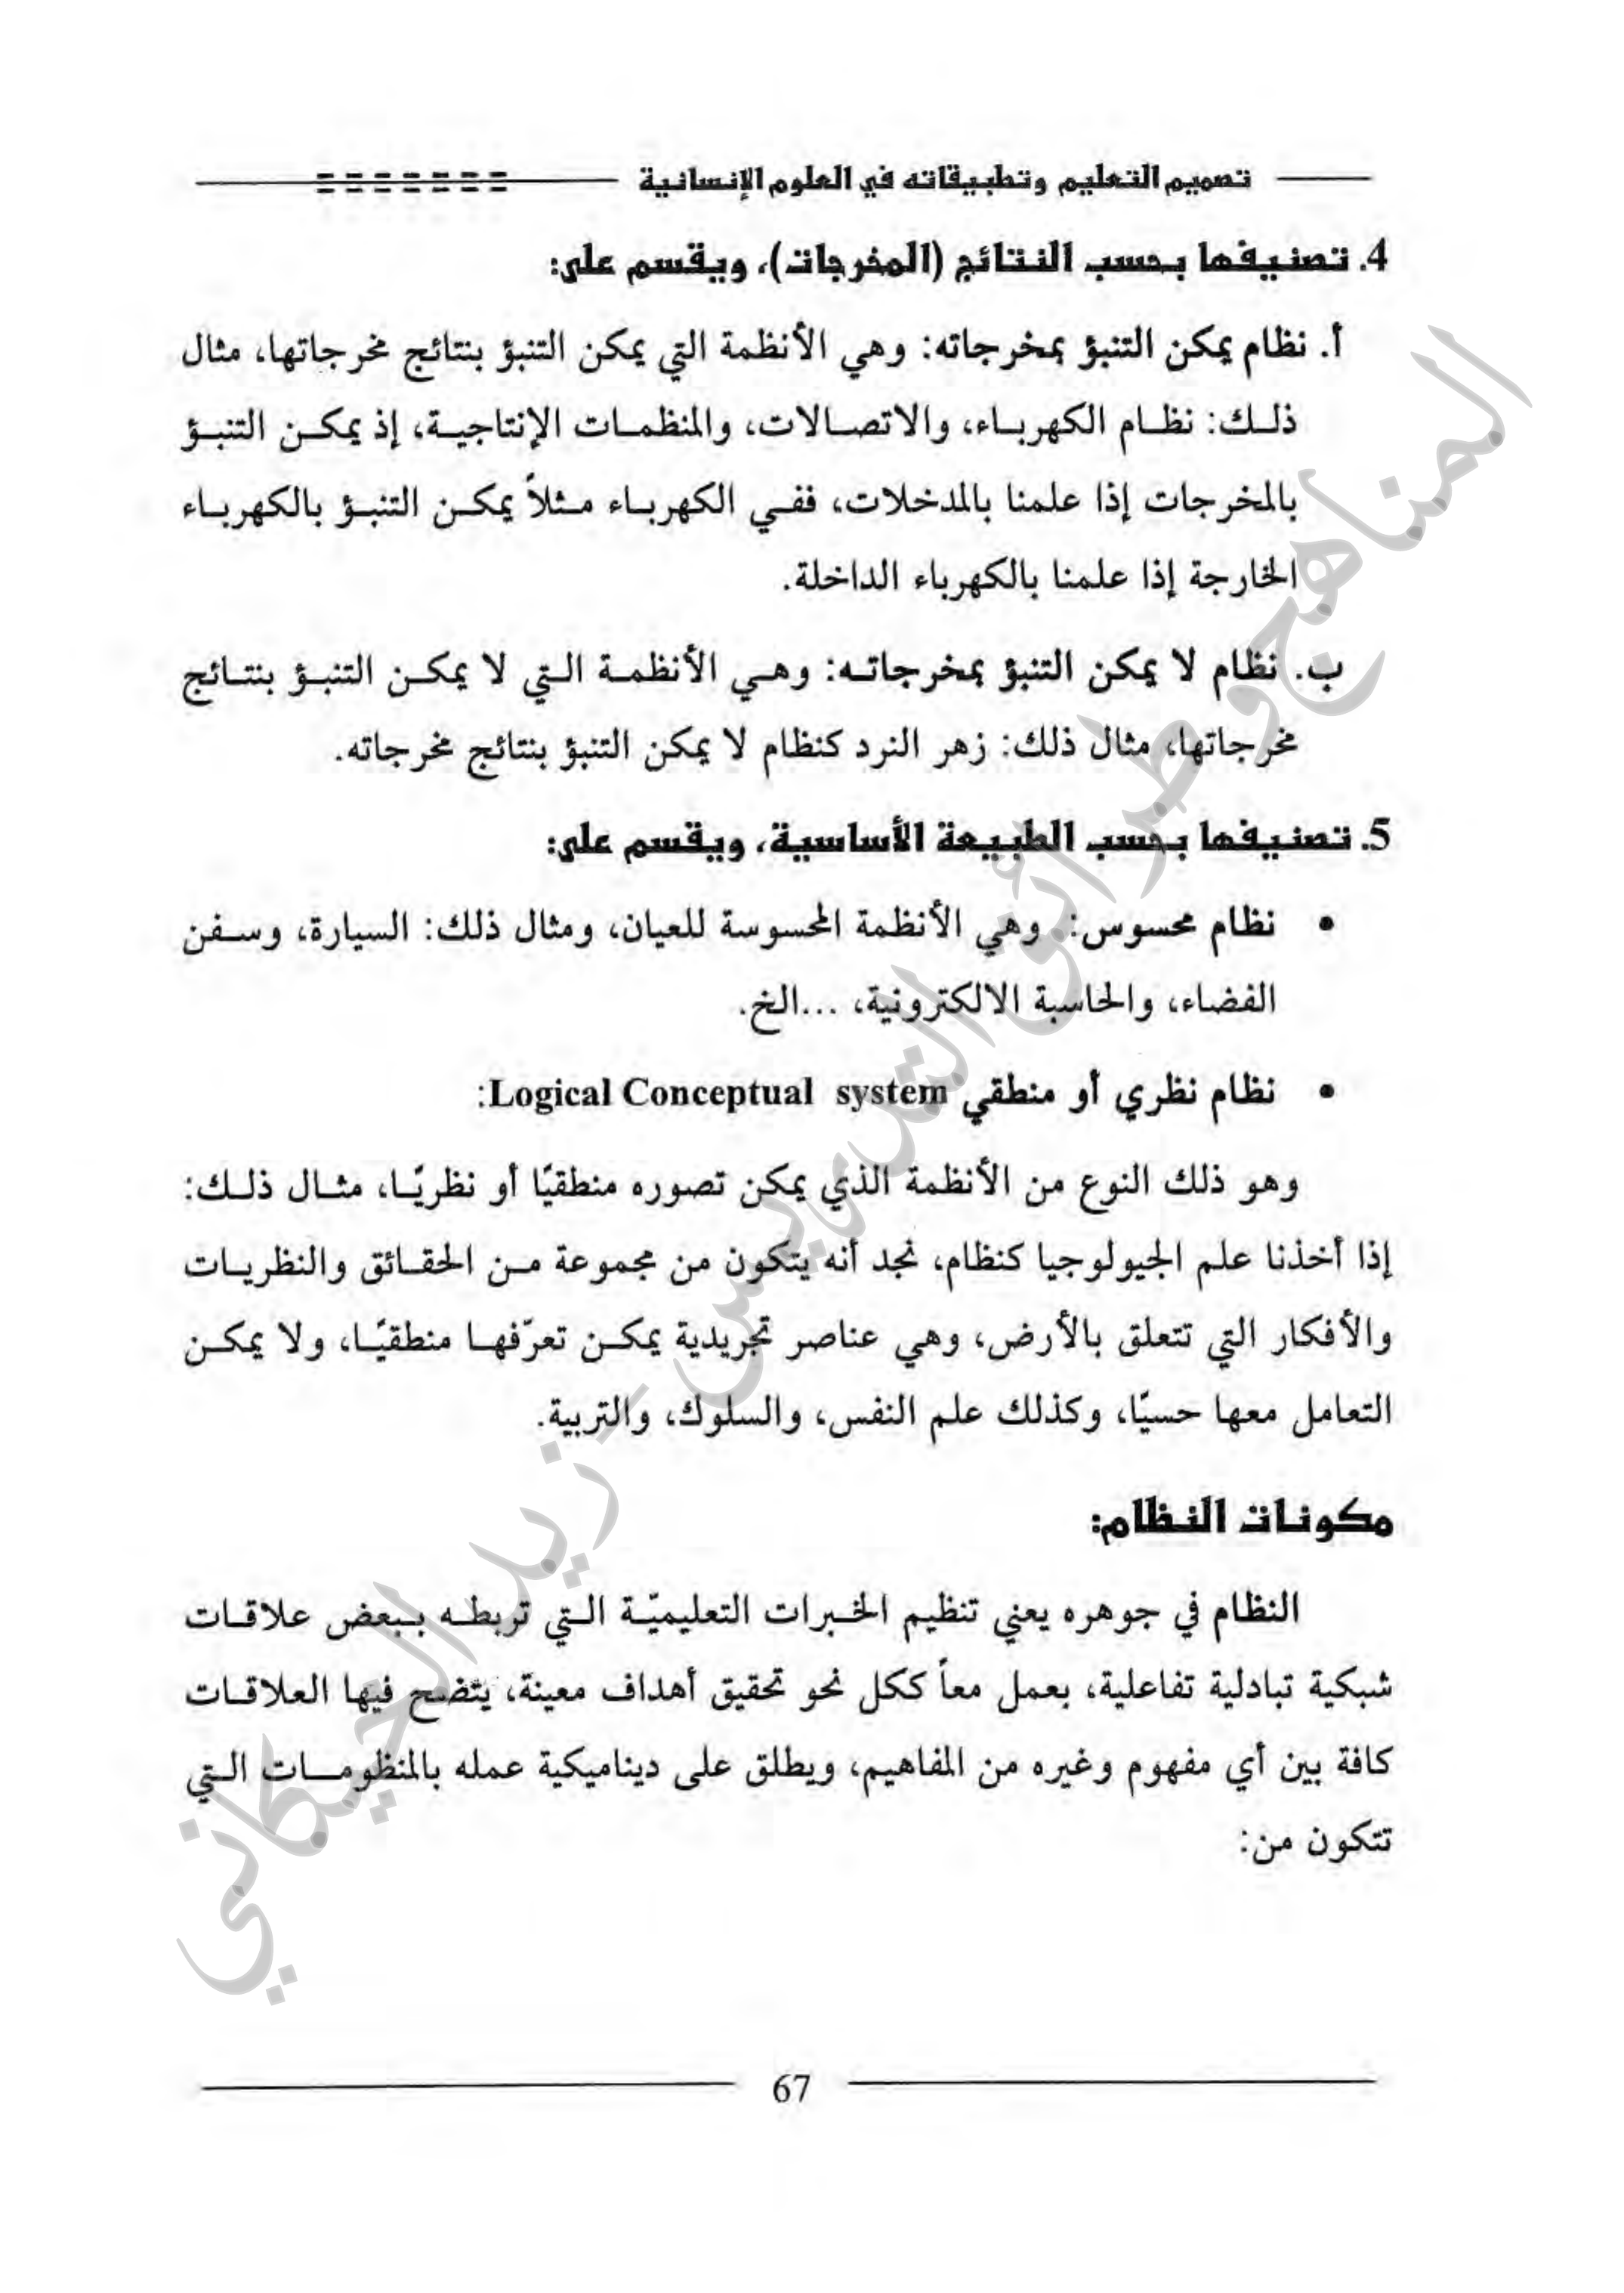 تصميم التعليم وتطبيقاته في العلوم الإنسانية
4. تصنيفها بحسب النتائج (المخرجات)، ويقسم على:
أ. نظام يمكن التنبؤ بمخرجاته: وهي الأنظمة التي يمكن التنبؤ بنتائج مخرجاتها، مثال
ذلك: نظام الكهرباء، والاتصالات، والمنظمات الإنتاجية، إذ يمكن التنبؤ
بالمخرجات إذا علمنا بالمدخلات، ففي الكهرباء مثلاً يمكن التنبؤ بالكهرباء
الخارجة إذا علمنا بالكهرباء الداخلة.
ب. نظام لا يمكن التنبؤ بمخرجاته: وهي الأنظمة التي لا يمكن التنبؤ بنتائج
مخرجاتها، مثال ذلك: زهر النرد كنظام لا يمكن التنبؤ بنتائج مخرجاته.
5. تصنيفها بحسب الطبيعة الأساسية، ويقسم على:
• نظام محسوس: وهي الأنظمة المحسوسة للعيان، ومثال ذلك: السيارة، وسفن
الفضاء، والحاسبة الالكترونية، ...الخ.
• نظام نظري أو منطقي Logical Conceptual system:
وهو ذلك النوع من الأنظمة الذي يمكن تصوره منطقيًا أو نظريًا، مثال ذلك:
إذا أخذنا علم الجيولوجيا كنظام، نجد أنه يتكون من مجموعة من الحقائق والنظريات
والأفكار التي تتعلق بالأرض، وهي عناصر تجريدية يمكن تعرّفها منطقيًا، ولا يمكن
التعامل معها حسيًا، وكذلك علم النفس، والسلوك، والتربية.
مكونات النظام:
النظام في جوهره يعني تنظيم الخبرات التعليميّة التي تربطه ببعض علاقات
شبكية تبادلية تفاعلية، بعمل معاً ككل نحو تحقيق أهداف معينة، يتضح فيها العلاقات
كافة بين أي مفهوم وغيره من المفاهيم، ويطلق على ديناميكية عمله بالمنظومات التي
تتكون من:
67
المناهج وطرائق التدريس - زيد الحيكاني